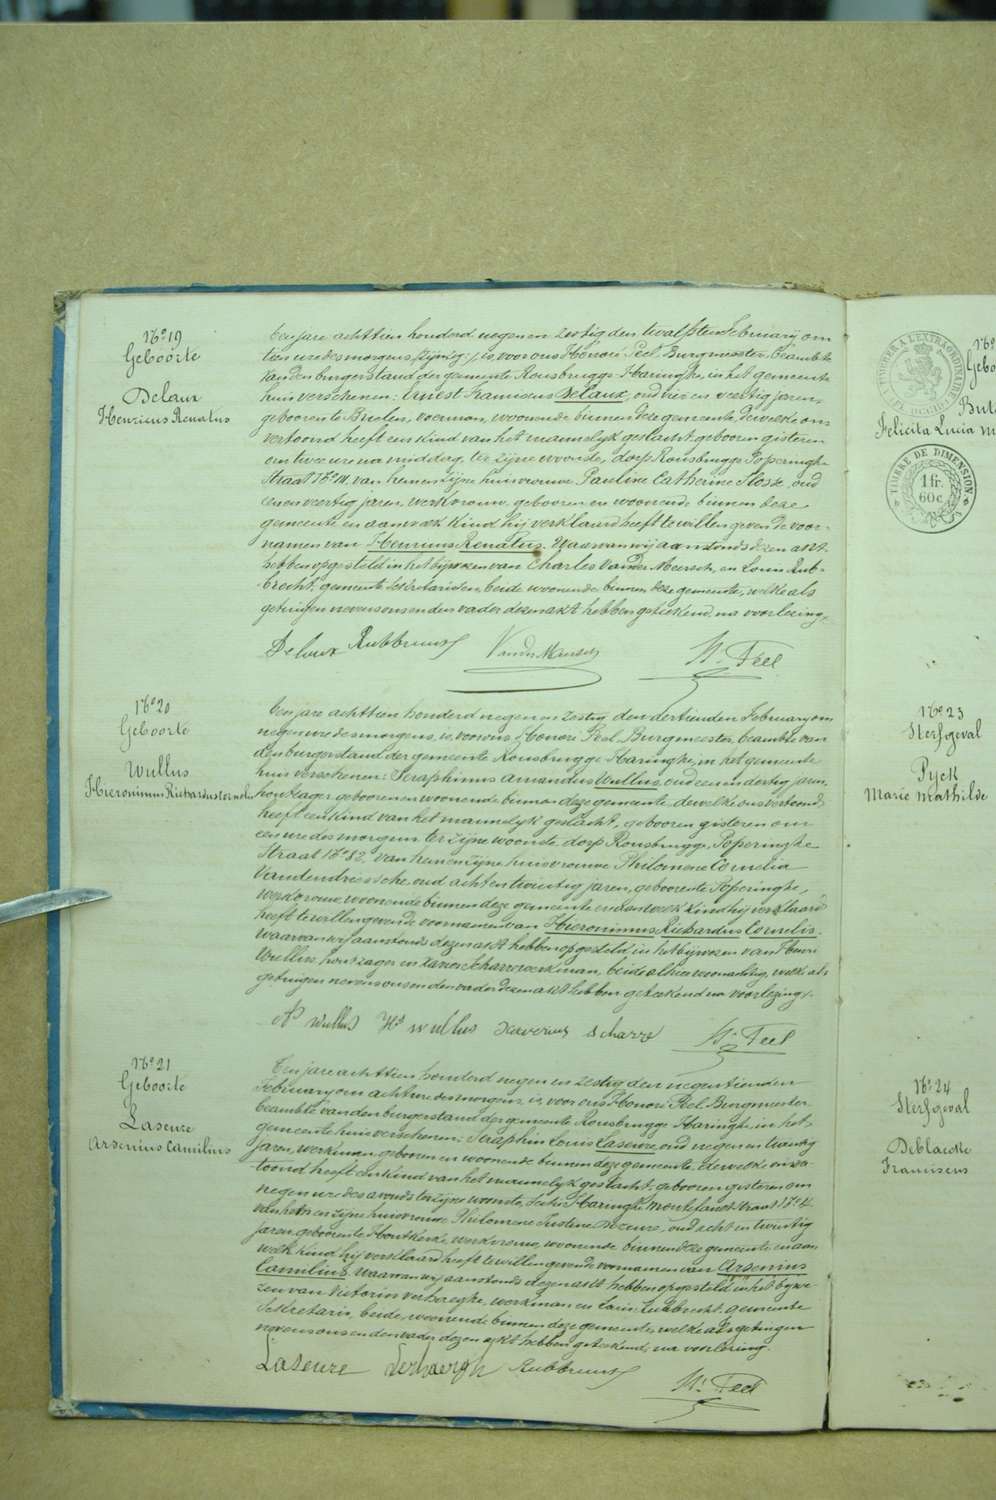 N° 19
Geboorte
Delaux
Henricus Renatus
Ten jare achttien honderd negen en zestig den twalfsten February om
tien ure des morgens, is, voor ons Honoré Feel, Burgmeester, beambte
van den burgerstand der gemeente Rousbrugge-Haringhe, in het gemeente
huis verschenen: Ernest Franciscus Delaux, oud vier en veertig jaren,
geboren te Brielen, voerman, woonende binnen deze gemeente, dewelke ons
vertoond heeft een kind van het mannelyk geslacht, gebooren gisteren
om twee ure na middag, ter zijne woonste, dorp Rousbrugge, Poperinghe
Straat N° 111, van hem en zijne huisvrouwe Pauline Catherine Floss, oud
een en veertig jaren, werkvrouw, gebooren en woonende binnen deze
gemeente en aan welk kind hij verklaard heeft te willen geven de voor-
namen van Henricus Renatus. Waarvan wij aanstonds dezen akt
hebben opgesteld in het bijwezen van Charles Vander Meersch, en Louis Rub-
brecht, gemeente sekretaris en, beide woonende binnen deze gemeente, welke als
getuigen nevens ons en den vader dezen akt hebben geteekend, na voorlezing.
Delaux Rubbrecht VanderMeersch H. Feel
N° 20
Geboorte
Wullus
Hieronimus Richardus Cornelis
Ten jare achttien honderd negen en zestig, den dertienden February om
negen ure des morgens, is, voor ons, Honoré Feel, Burgmeester, beambte van
den burgerstand der gemeente Rousbrugge-Haringhe, in het gemeente
huis verschenen: Seraphinus Amandus Wullus, oud een en dertig jaren,
houtzager, gebooren en woonende binnen deze gemeente, dewelke ons vertoond
heeft een kind van het mannelyk geslacht, gebooren gisteren om
een ure des morgens, ter zijne woonste, dorp Rousbrugge, Poperinghe
Straat N° 82, van hem en zijne huisvrouwe Philomene Cornelia
Vandendriessche, oud acht en twintig jaren, geboren te Poperinghe,
werkvrouw, woonende binnen deze gemeente en aan welk kind hij verklaard
heeft te willen geven de voornamen van Hieronimus Richardus Cornelis.
Waarvan wij aanstonds dezen akt hebben opgesteld, in het bijwezen van Henri
Wullus, houtzager en Xavier Scharre werkman, beide alhier woonachtig, welke als
getuigen nevens ons en den vader dezen akt hebben geteekend na voorlezing.
Wullus Hri Wullus Xaverius Scharre H. Feel
N° 21
Geboorte
Laseure
Arsenius Camilius
Ten jare achttien honderd negen en zestig den negentienden
February om acht ure des morgens, is, voor ons Honoré Feel, Burgmeester
beambte van den burgerstand der gemeente Rousbrugge-Haringhe, in het
gemeente huis verschenen: Seraphin Louis Laseure, oud negen en twintig
jaren, werkman, gebooren en woonende binnen deze gemeente, dewelke ons ver-
toond heeft een kind van het mannelyk geslacht, gebooren gisteren om
negen ure des avonds ter zijne woonste, Sectie Haringhe N° 14
van hem en zijne huisvrouwe Philomene Justine, oud acht en twintig
jaren, geboren te Houtkerke, werkvrouw, woonende binnen deze gemeente en aan
welk kind hij verklaard heeft te willen geven de voornamen van Arsenius
Camilius. Waarvan wij aanstonds dezen akt hebben opgesteld in het bijwe-
zen van Victorin Verberghe, werkman en Louis Rubbrecht gemeente
Sekretaris, beide, woonende binnen deze gemeente, welke als getuigen
nevens ons en den vader dezen akt hebben geteekend, na voorlezing.
Laseure Rubbrecht H. Feel
N°
Gebo
Felicita Lucia M
TIMBRE DE DIMENSION
1 fr.
60 c.
N° 23
Sterfgeval
Pyck
Marie Mathilde
N° 24
Sterfgeval
Deblaecke
Franciscus